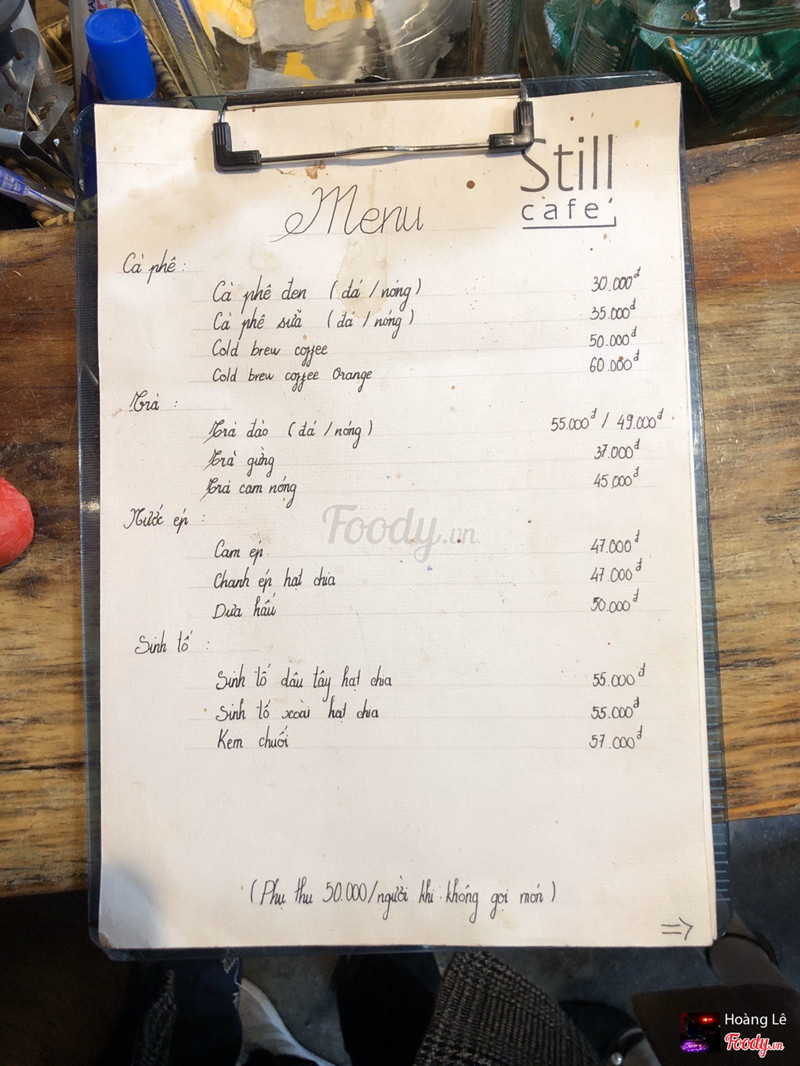 Still
cafe
Menu
Cà phê :
Cà phê đen (đá / nóng) 30.000đ
Cà phê sữa (đá / nóng) 35.000đ
Cold brew coffee 50.000đ
Cold brew coffee Orange 60.000đ
Trà :
Trà đào (đá / nóng) 55.000đ / 49.000đ
Trà gừng 37.000đ
Trà cam nóng 45.000đ
Nước ép :
Cam ép 47.000đ
Chanh ép hạt chia 47.000đ
Dưa hấu 50.000đ
Sinh tố :
Sinh tố dâu tây hạt chia 55.000đ
Sinh tố xoài hạt chia 55.000đ
Kem chuối 57.000đ
(Phụ thu 50.000/người khi không gọi món)
⇒
Foody.vn
Hoàng Lê
Foody.vn